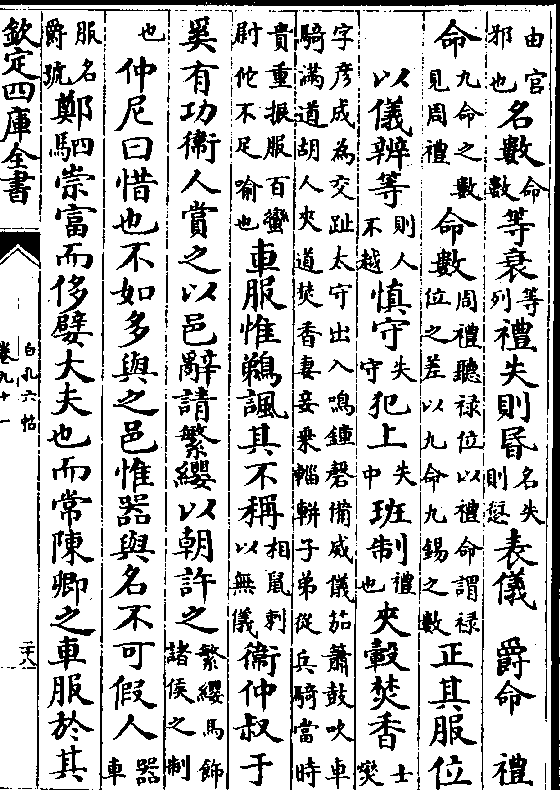 由官邪也名數命數等衰等列禮失則昏名失則愆表儀 爵命 禮
命九命之數見周禮命數周禮聽禄位以禮命謂禄位之差以九命九錫之數正其服位
以儀辨等則人不越慎守失守犯上失中班制禮也夾轂焚香士燮
字彦成為交趾太守出入鳴鍾磬備威儀茄簫鼓吹車騎滿道胡人夾道焚香妻妾乗輜軿子弟從兵騎當時
貴重振服百蠻尉佗不足喻也車服惟鵜諷其不稱相鼠刺以無儀衞仲叔于
奚有功衞人賞之以邑辭請繁纓以朝許之繁纓馬飾諸侯之制
也仲尼曰惜也不如多與之邑惟器與名不可假人器車
服名爵號鄭駟崇富而侈嬖大夫也而常陳卿之車服於其
欽定四庫全書
白孔六帖
卷九十一
二十八